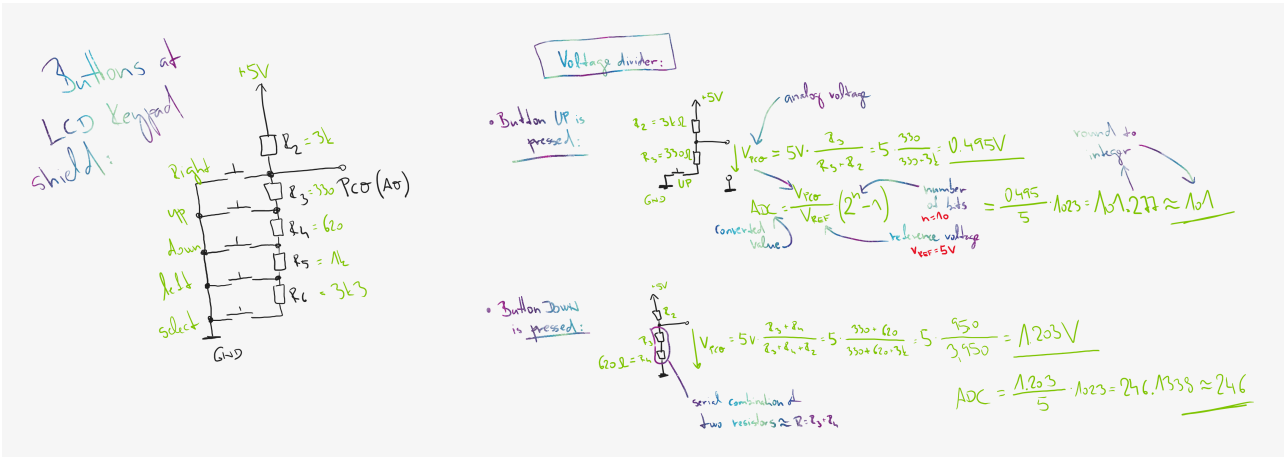 Buttons at
LCD Keypad
shield:
+5V
R2 = 3k
Right
R3 = 330
PC0 (A0)
up
R4 = 620
down
R5 = 1k
left
R6 = 3k3
select
GND
Voltage divider:
• Button UP is
pressed:
+5V
R2 = 3kΩ
R3 = 330Ω
UP
GND
analog voltage
VPC0 = 5V · R3 / (R3 + R2) = 5 · 330 / (330 + 3k) = 0.495V
ADC = VPC0 / VREF (2^n - 1)
number
of bits
n=10
converted
value
reference voltage
VREF = 5V
round to
integer
= 0.495 / 5 · 1023 = 101.277 ≈ 101
• Button Down
is pressed:
+5V
R2
R3
620Ω = R4
VPC0 = 5V R3 + R4 / (R3 + R4 + R2) = 5 · 330 + 620 / (330 + 620 + 3k) = 5 950 / 3,950 = 1.203V
serial combination of
two resistors ≈ R = R3 + R4
ADC = 1.203 / 5 · 1023 = 246.1338 ≈ 246